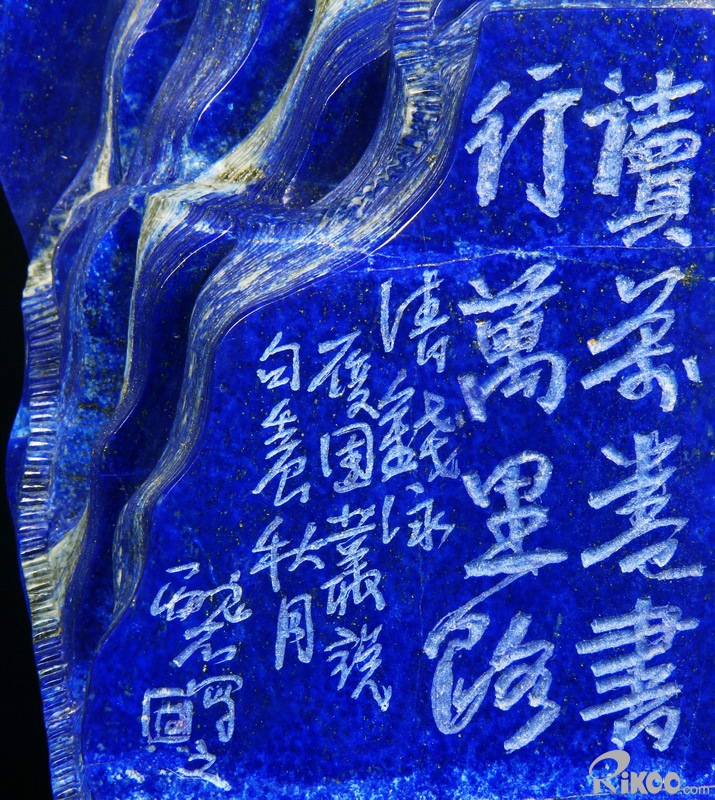 讀萬卷書
行萬里路
清錢泳
履園叢說
句
秋月
之
Rikoo.com